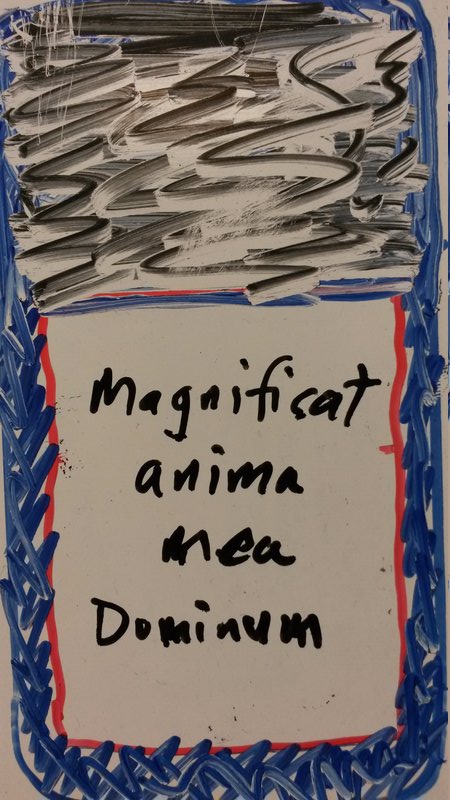 Magnificat
anima
mea
Dominum